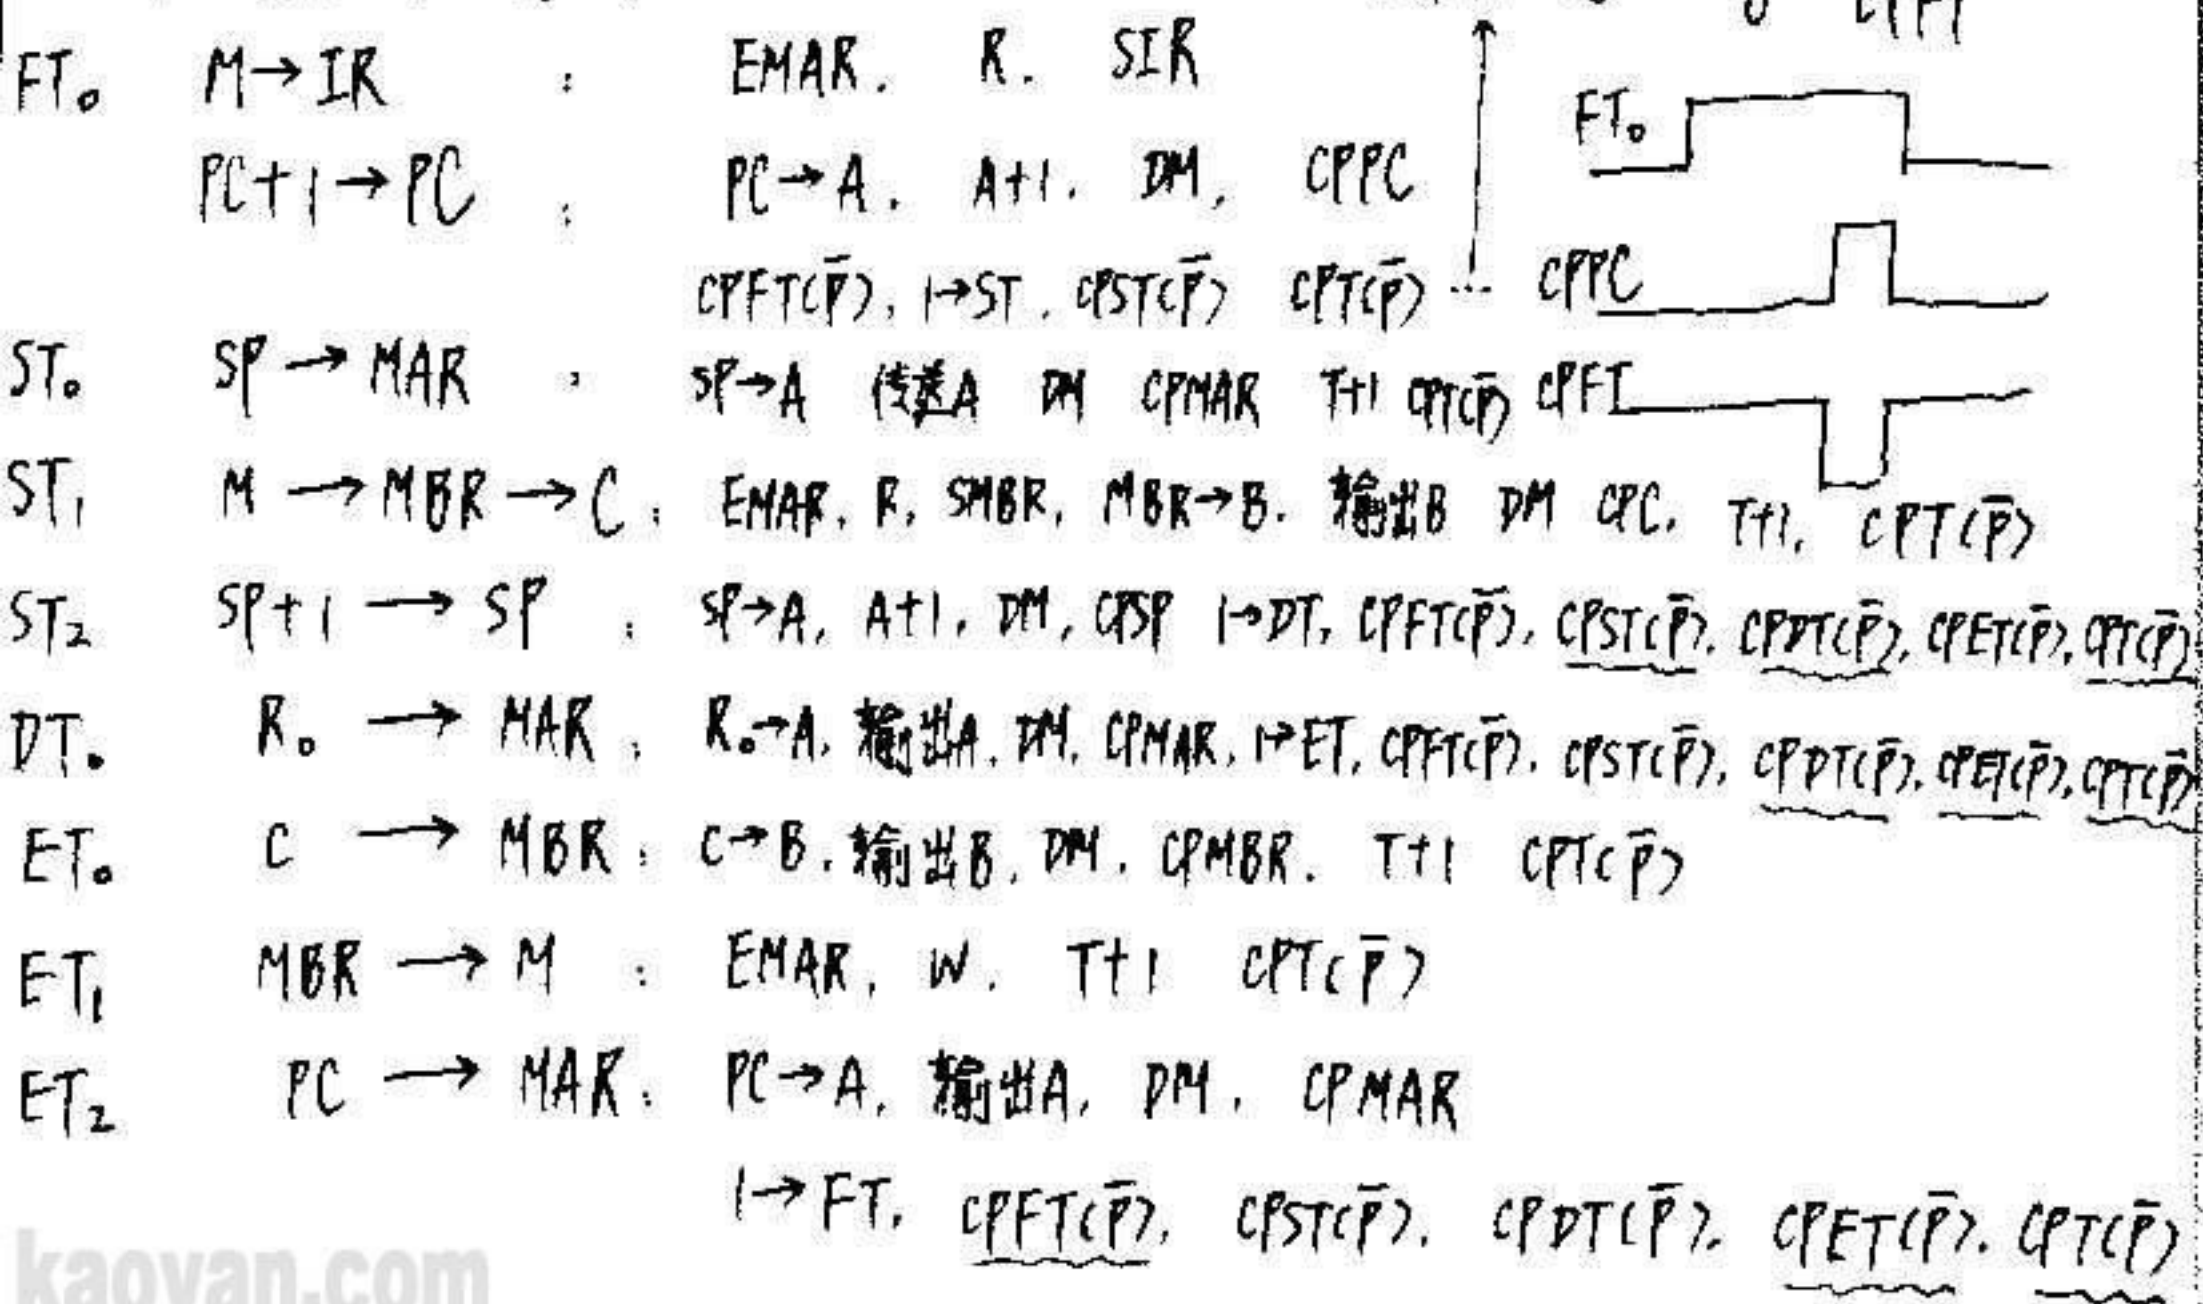 FT₀ M→IR : EMAR. R. SIR
FT₀
PC+1→PC : PC→A. A+1. DM, CPPC
CPFT(P̄), 1→ST. CPST(P̄) CPT(P̄) ... CPPC
ST₀ SP→MAR : SP→A 传送A DM CPMAR T+1 CPT(P̄) CPFT
ST₁ M→MBR→C : EMAR. R, SMBR, MBR→B. 输出B DM CPC. T+1, CPT(P̄)
ST₂ SP+1→SP : SP→A, A+1, DM, CPSP 1→DT, CPFT(P̄), CPST(P̄). CPDT(P̄), CPET(P̄), CPT(P̄)
DT₀ R₀→MAR : R₀→A, 输出A, DM, CPMAR, 1→ET, CPFT(P̄). CPST(P̄), CPDT(P̄). CPET(P̄), CPT(P̄)
ET₀ C→MBR : C→B. 输出B. DM. CPMBR. T+1 CPT(P̄)
ET₁ MBR→M : EMAR, W. T+1 CPT(P̄)
ET₂ PC→MAR : PC→A. 输出A, DM. CPMAR
1→FT. CPFT(P̄), CPST(P̄). CPDT(P̄). CPET(P̄). CPT(P̄)
kaoyan.com